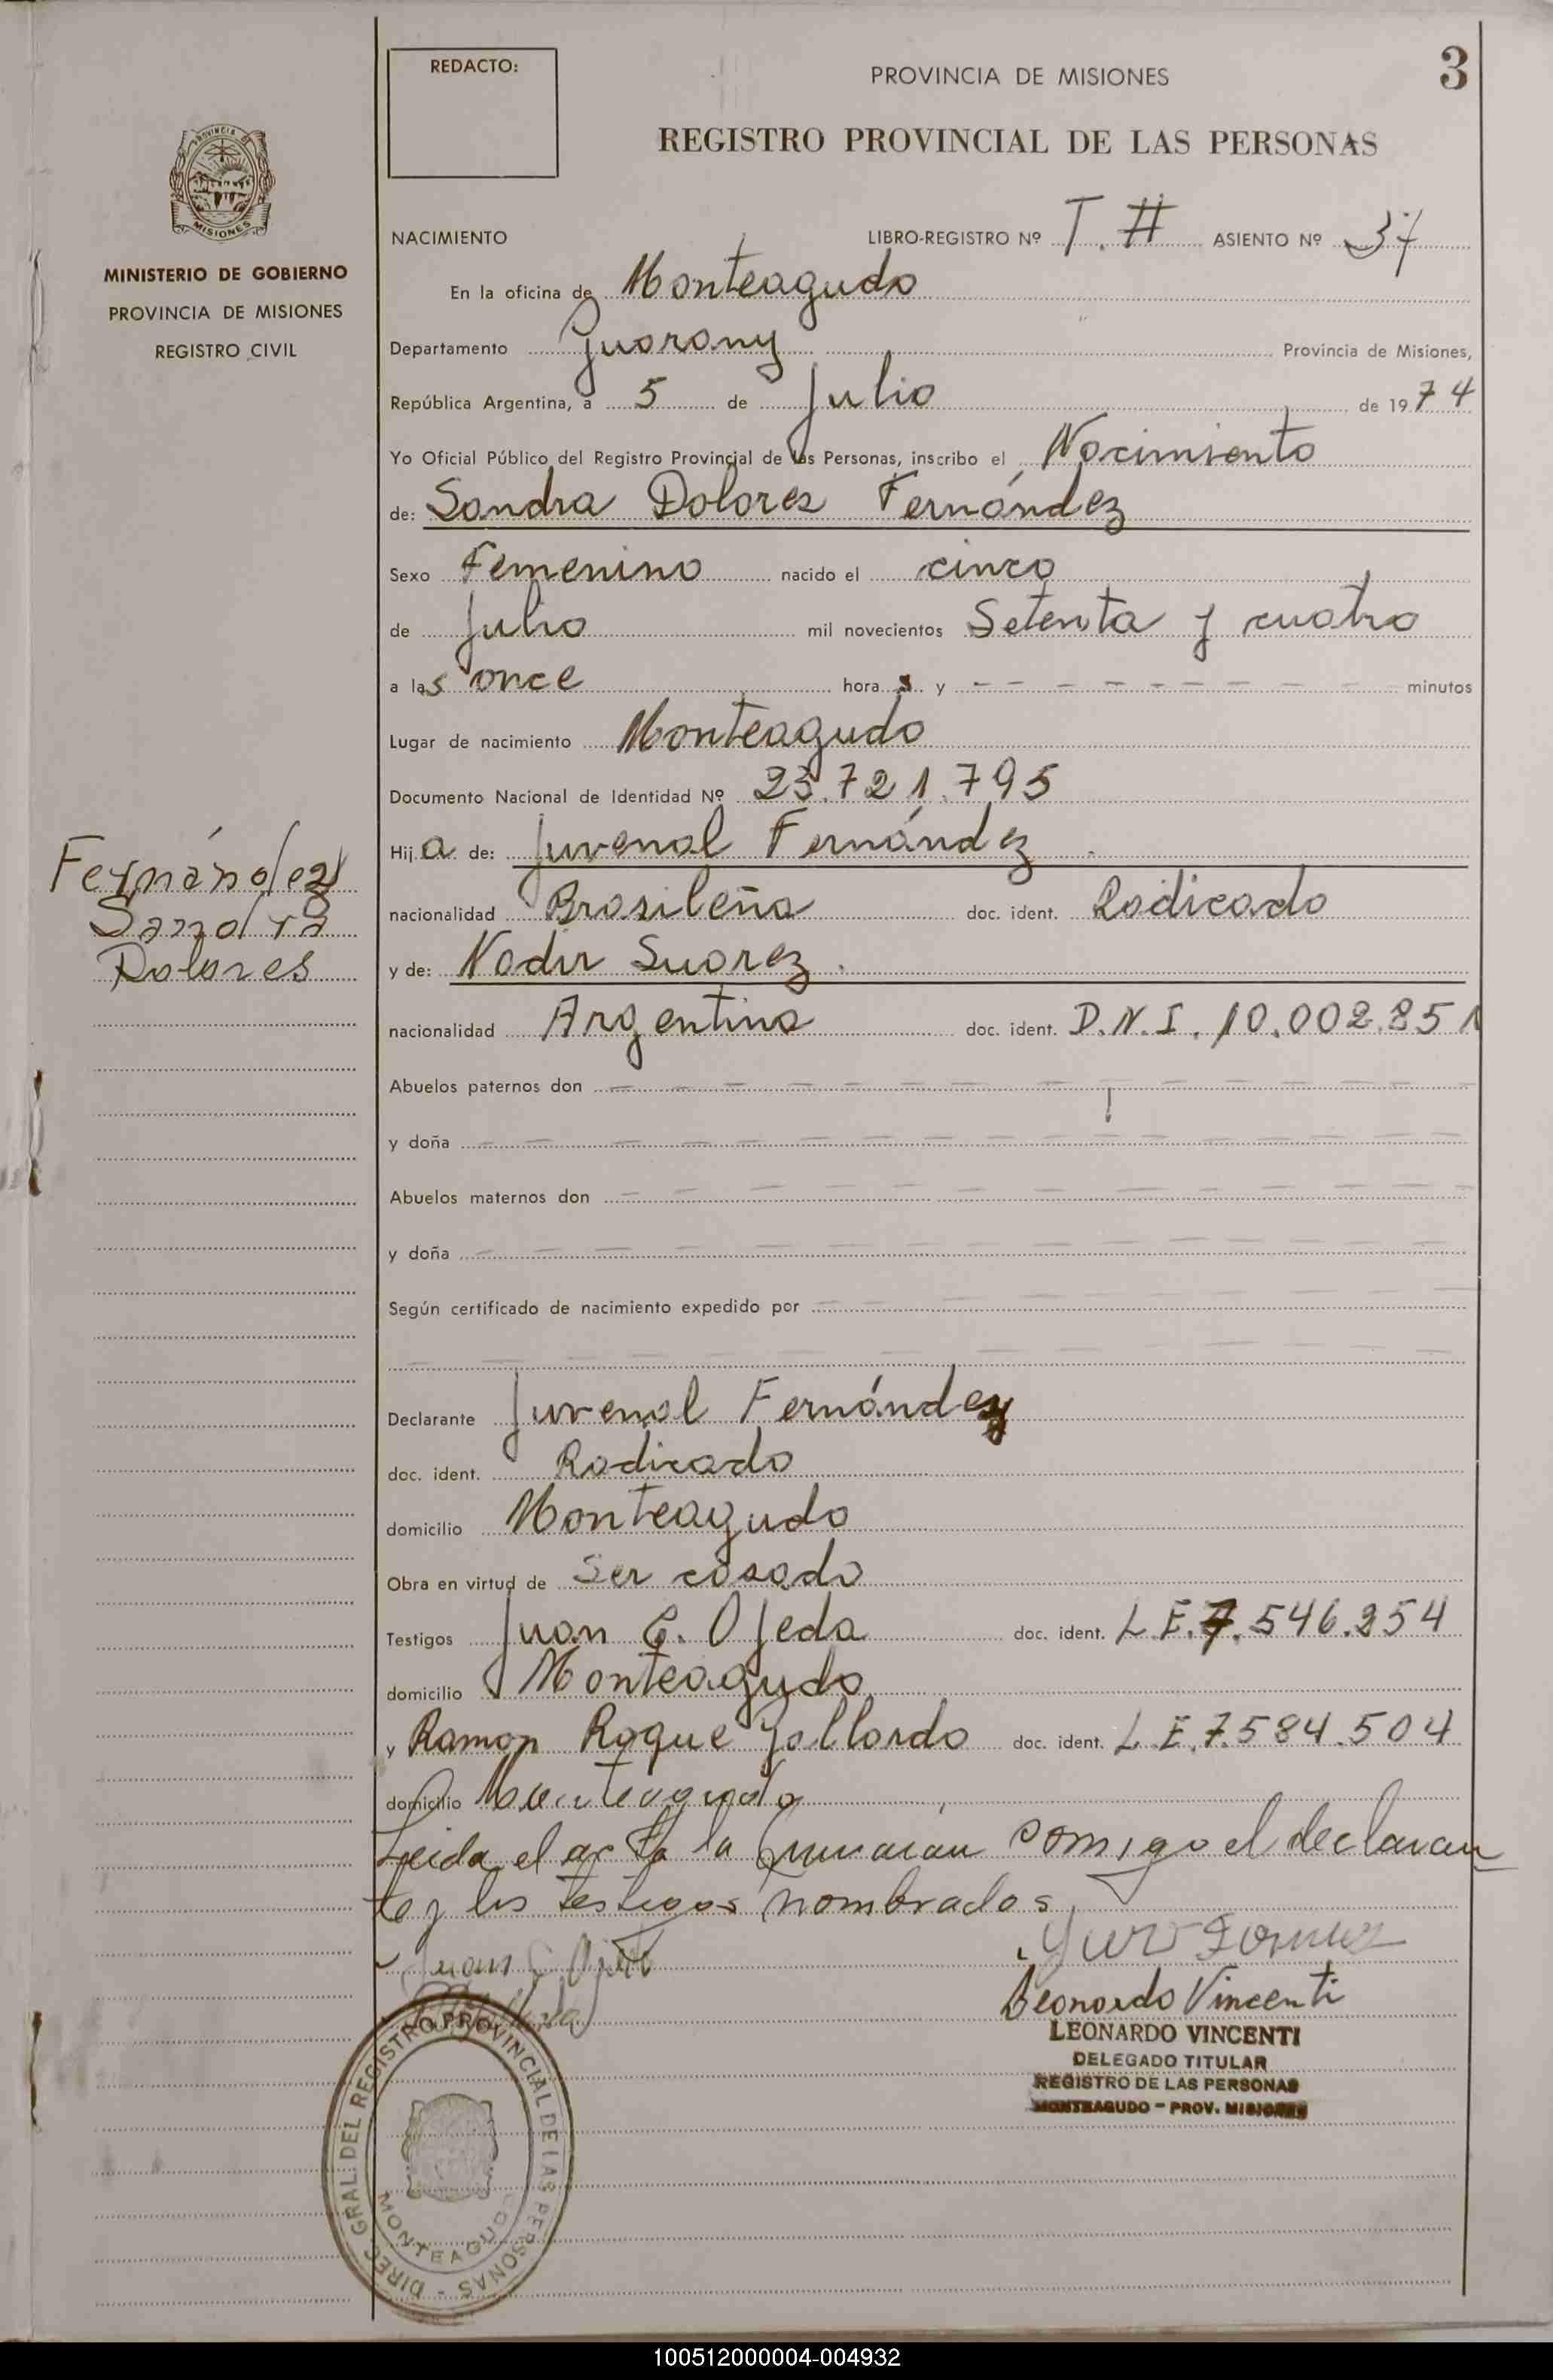 REDACTO:
PROVINCIA DE MISIONES
3
REGISTRO PROVINCIAL DE LAS PERSONAS
PROVINCIA DE
MISIONES
MINISTERIO DE GOBIERNO
PROVINCIA DE MISIONES
REGISTRO CIVIL
NACIMIENTO LIBRO-REGISTRO Nº T. # ASIENTO Nº 37
En la oficina de Monteagudo
Departamento Guarany Provincia de Misiones,
República Argentina, a 5 de Julio de 1974
Yo Oficial Público del Registro Provincial de las Personas, inscribo el Nacimiento
de: Sandra Dolores Fernández
Sexo Femenino nacido el cinco
de Julio mil novecientos Setenta y cuatro
a las once horas y - - - - - - - - - - minutos
Lugar de nacimiento Monteagudo
Documento Nacional de Identidad Nº 23.721.795
Hija de: Juvenal Fernández
nacionalidad Brasileña doc. ident. Radicado
y de: Nadir Suarez.
nacionalidad Argentina doc. ident. D.N.I. 10.002.851
Fernández
Sandra
Dolores
Abuelos paternos don
y doña
Abuelos maternos don
y doña
Según certificado de nacimiento expedido por
Declarante Juvenal Fernández
doc. ident. Radicado
domicilio Monteagudo
Obra en virtud de Ser casado
Testigos Juan C. Ojeda doc. ident. L.E.7.546.254
domicilio Monteagudo
y Ramon Roque Gallardo doc. ident. L.E.7.584.504
domicilio Monteagudo
Leida el acta la firmaran comigo el declaran
te y los testigos nombrados
Juan C Ojeda
Leonardo Vincenti
LEONARDO VINCENTI
DELEGADO TITULAR
REGISTRO DE LAS PERSONAS
MONTEAGUDO - PROV. MISIONES
DIREC. GRAL. DEL REGISTRO PROVINCIAL DE LAS PERSONAS -
MONTEAGUDO
100512000004-004932